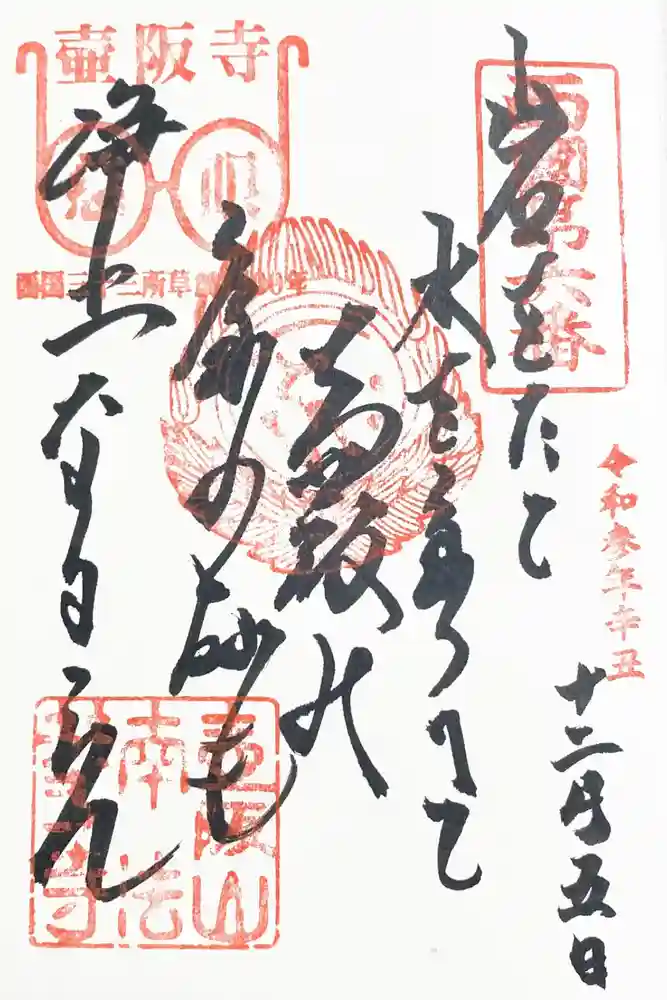 壷阪寺
西国三十三所草創1300年
西國第六番
令和参年辛丑
十二月五日
岩をたて
水をたゝへて
壷阪の
庭の砂も
浄土なるらん
壷阪山
南法